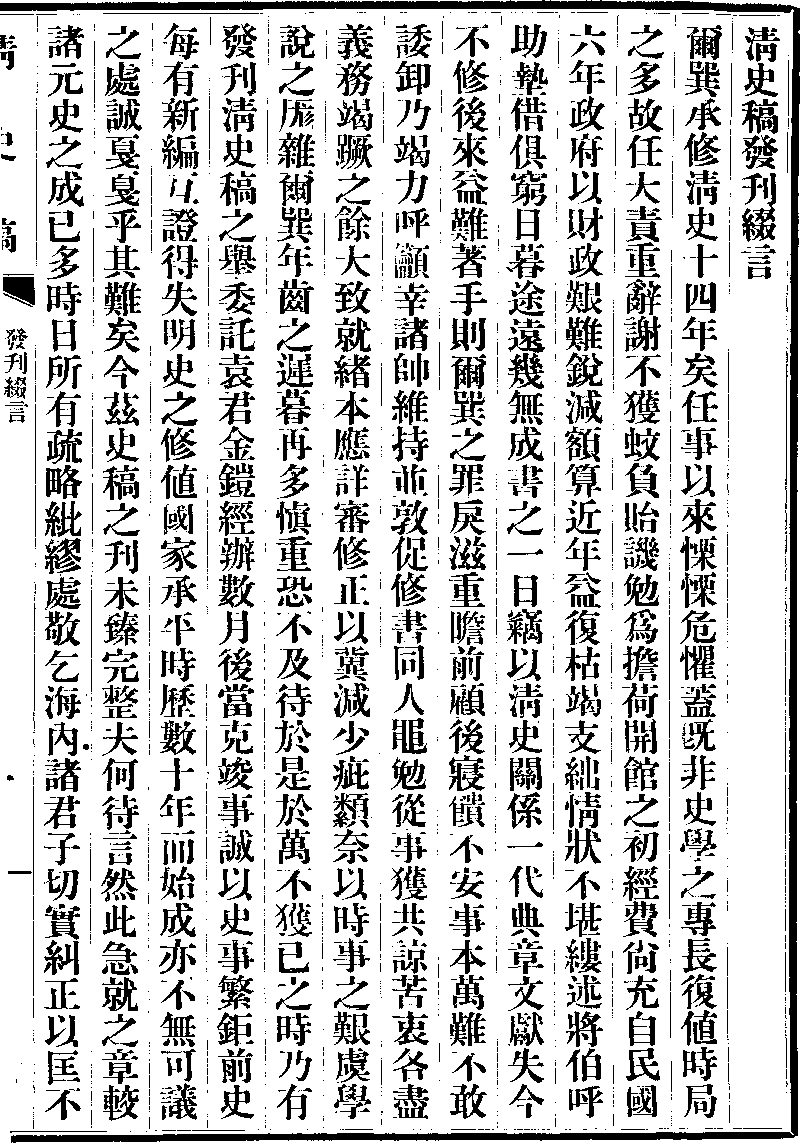 淸史稿發刊綴言
爾巽承修淸史十四年矣任事以來慄慄危懼蓋旣非史學之專長復値時局
之多故任大責重辭謝不獲蚊負貽譏勉爲擔荷開館之初經費尙充自民國
六年政府以財政艱難銳減額算近年益復枯竭支絀情狀不堪縷述將伯呼
助墊借俱窮日暮途遠幾無成書之一日竊以淸史關係一代典章文獻失今
不修後來益難著手則爾巽之罪戾滋重瞻前顧後寢饋不安事本萬難不敢
諉卸乃竭力呼籲幸諸帥維持並敦促修書同人黽勉從事獲共諒苦衷各盡
義務竭蹶之餘大致就緒本應詳審修正以冀減少疵纇奈以時事之艱虞學
說之厖雜爾巽年齒之遲暮再多愼重恐不及待於是於萬不獲已之時乃有
發刊淸史稿之舉委託袁君金鎧經辦數月後當克竣事誠以史事繁鉅前史
每有新編互證得失明史之修値國家承平時歷數十年而始成亦不無可議
之處誠戛戛乎其難矣今茲史稿之刊未臻完整夫何待言然此急就之章較
諸元史之成已多時日所有疏略紕繆處敬乞海內諸君子切實糾正以匡不
淸史稿
發刊綴言
一